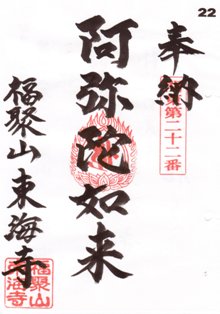 22
奉納
第二十二番
阿弥陀如来
福聚山東海寺
福聚山
東海寺